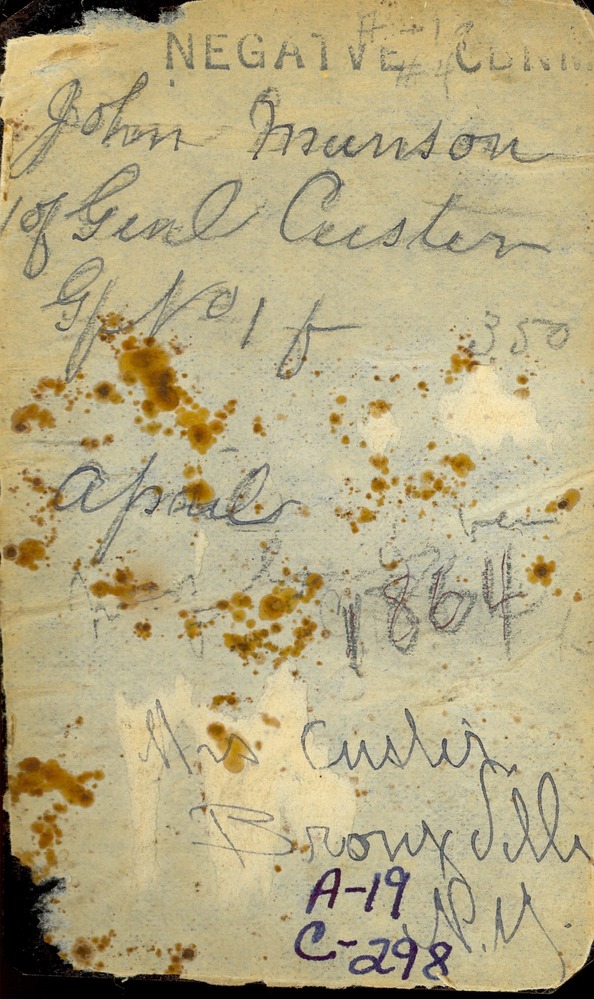 NEGATVE
John Munson
of Genl Custer
Gp No 1 f 350
April
1864
Mrs Custer
Bronxville
N.Y.
A-19
C-298